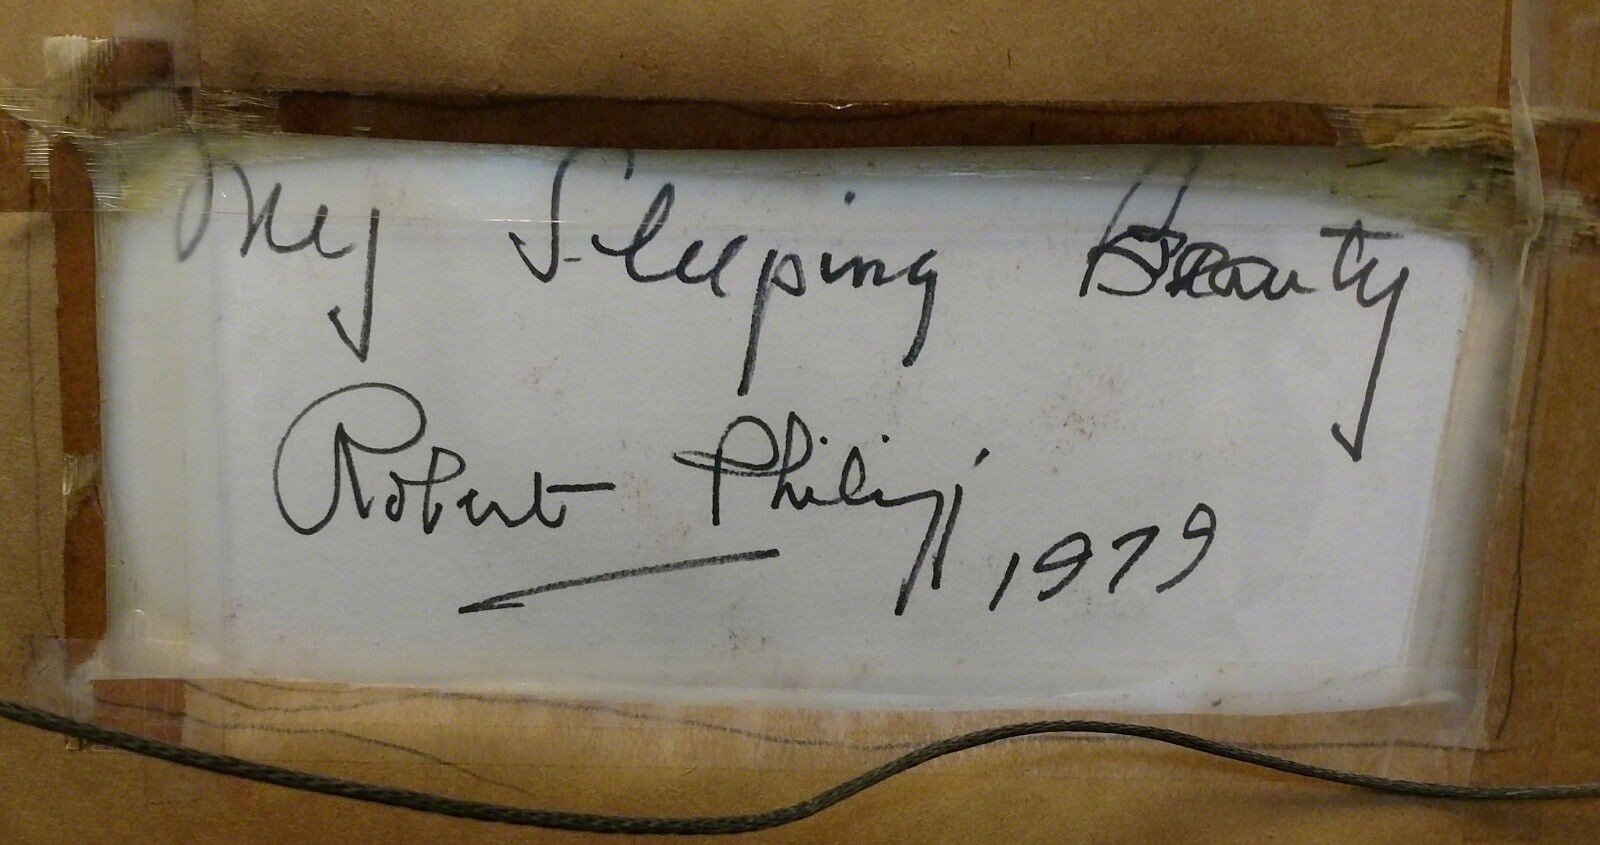 My Sleeping Beauty
Robert Philipp
1979